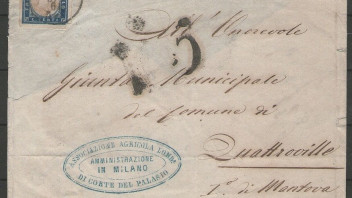 All' Onorevole
5
Giunta Municipale
del Comune di
Quattroville
ASSOCIAZIONE AGRICOLA LOMB.
AMMINISTRAZIONE
IN MILANO
DI CORTE DEL PALASIO
di Mantova